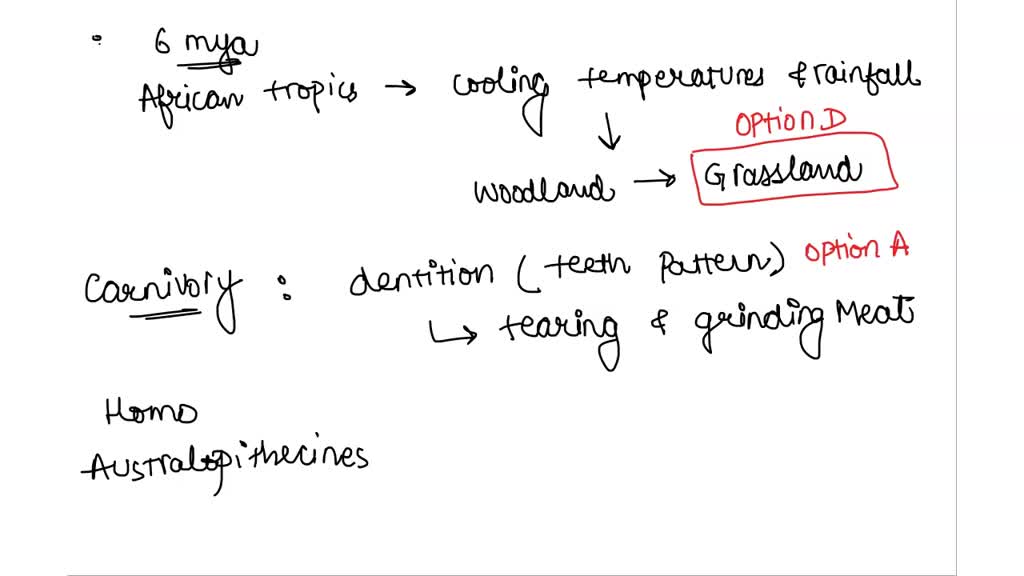 6 mya
African tropics → cooling temperatures & rainfall
↓
option D
woodland → Grassland
Carnivory : dentition (teeth pattern) option A
↳ tearing & grinding Meat
Homo
Australopithecines